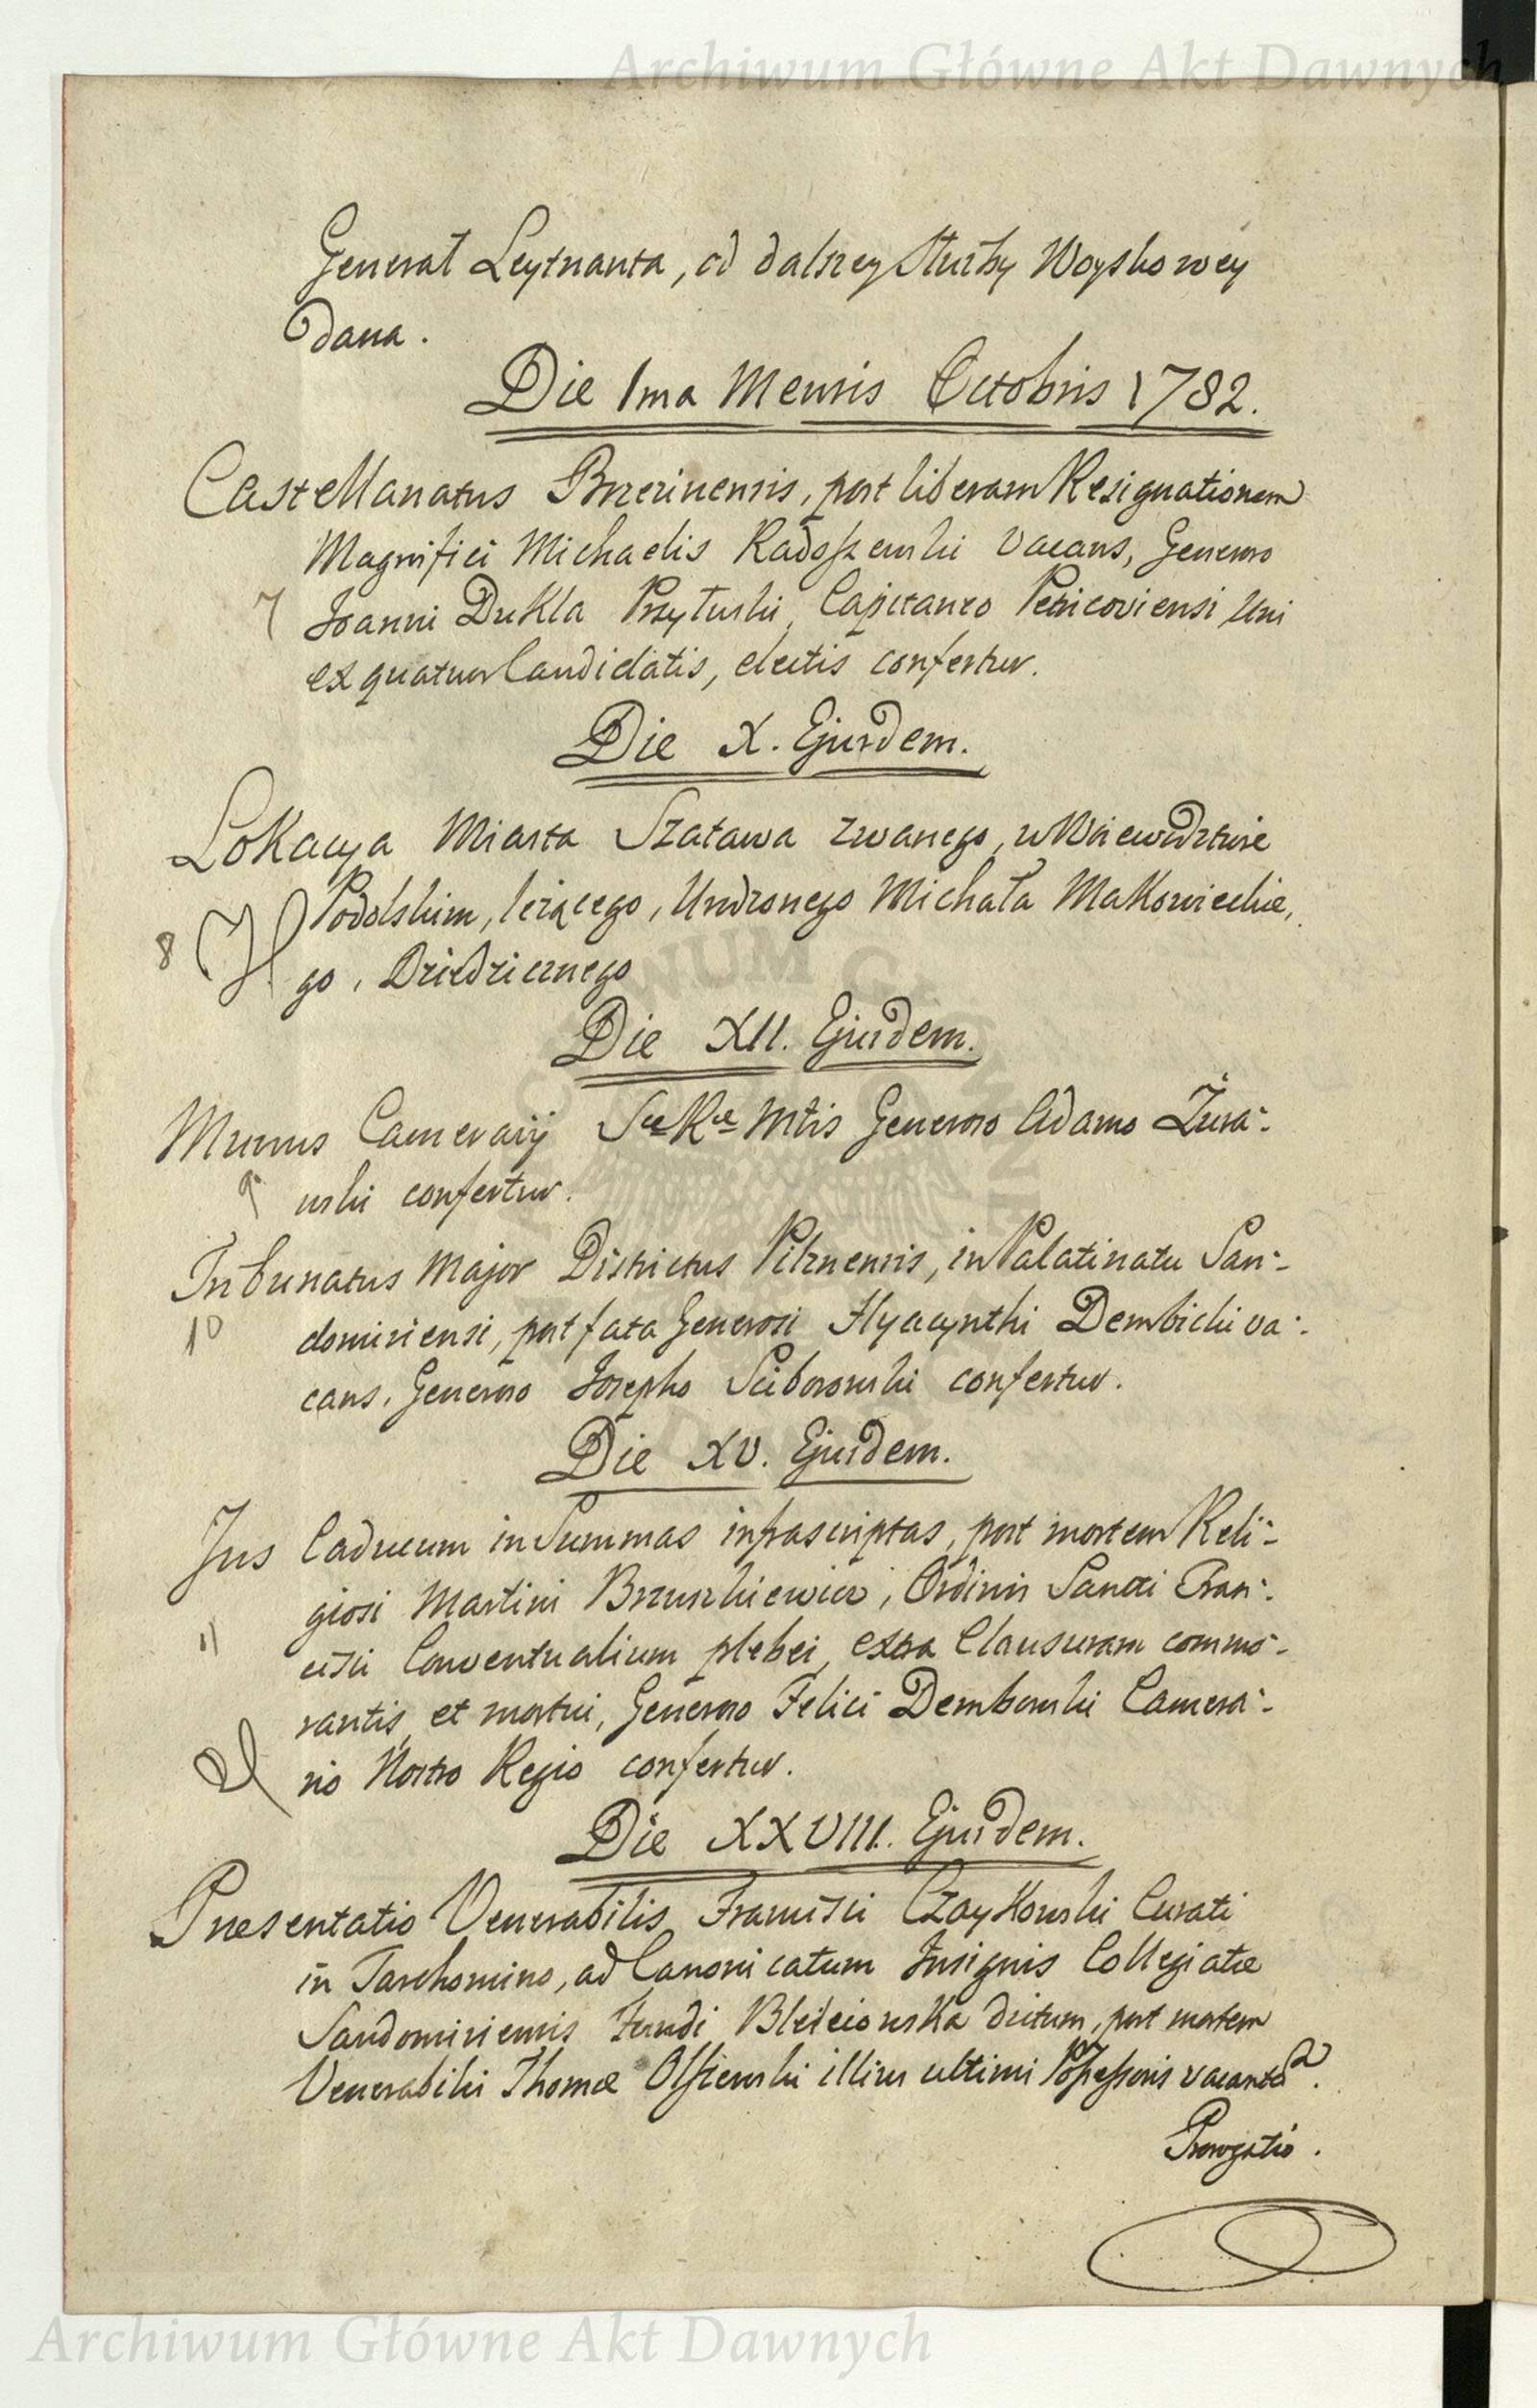 Archiwum Główne Akt Dawnych
Generał Leytnanta, od dalszey Służby Woyskowey
dana.
Die 1ma Mensis Octobris 1782.
Castellanatus Brzezinensis, post liberam Resignationem
Magnifici Michaelis Radoszewski vacans, Generoso
7 Joanni Dukla Przyłuski, Capitaneo Peticoviensi Uni
ex quatuor Candidatis, electis confertur.
Die X. Ejusdem.
Lokacya Miasta Szatawa zwanego, w Woiewodztwie
Podolskim, leżącego, Urodzonego Michała Makowieckie,
8 go, Dziedzicznego
Die XII. Ejusdem.
Munus Camerarij Sae Rae Mtis Generoso Adamo Żura-
9 wski confertur.
Tribunatus Major Districtus Pilznensis, in Palatinatu San-
10 domiriensi, post fata Generosi Hyacynthi Dembicki va-
cans, Generoso Josepho Sciborowski confertur.
Die XV. Ejusdem.
Jus Caducum in Summas infrascriptas, post mortem Reli-
giosi Martini Brzuszkiewicz, Ordinis Sancti Fran-
11 cisci Conventualium plebei, extra Clausuram commo-
rantis, et mortui, Generoso Felici Dembowski Camera-
rio Nostro Regio confertur.
Die XXVIII. Ejusdem.
Praesentatio Venerabilis Francisci Czaykowski Curati
in Tarchomino, ad Canonicatum Insignis Collegiatae
Sandomiriensis Fundi dictum, post mortem
Venerabilis Thomae Olszewski illius ultimi Possessoris vacantem.
Prorogatio.
Archiwum Główne Akt Dawnych